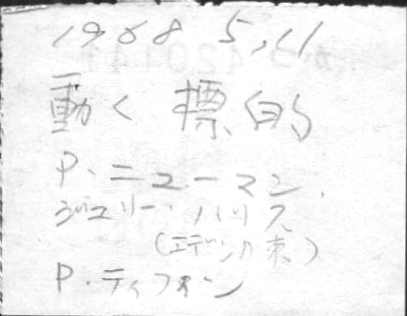 1968 5,11
動く標的
P.ニューマン.
ジュリー・ハリス
(エデンの東)
P.ティフィン